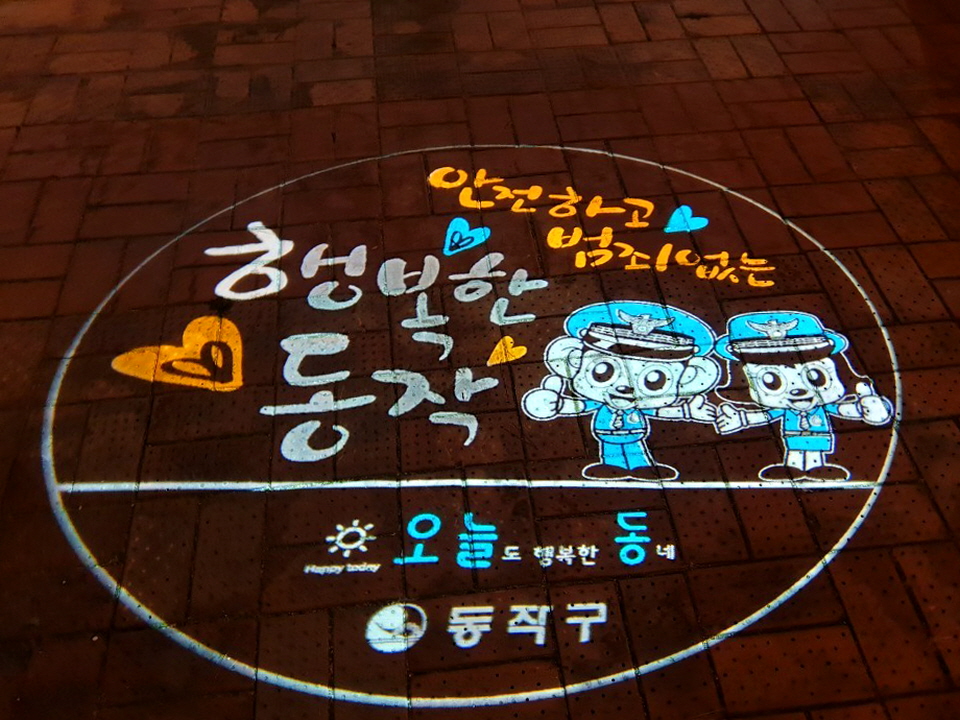 안전하고
범죄없는
행복한
동작
Happy today
오늘도 행복한 동네
동작구